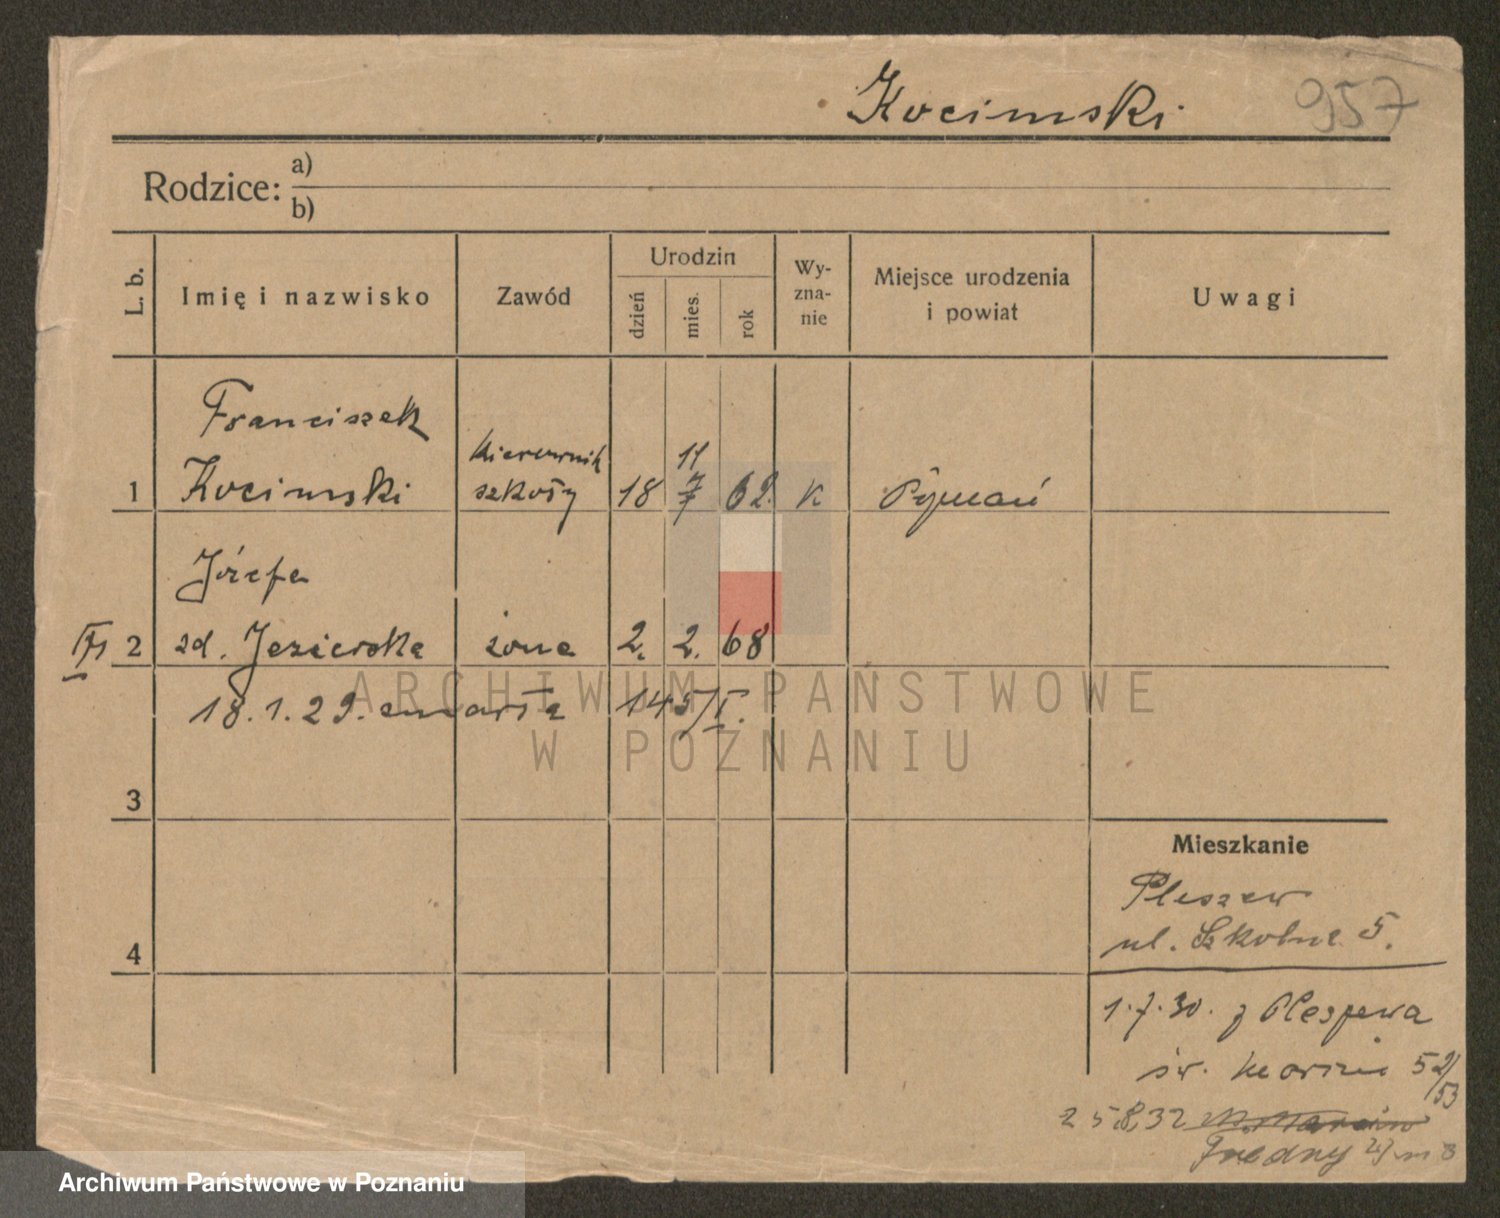 Kocimski 957
Rodzice: a)
b)
L. b.
Imię i nazwisko
Zawód
Urodzin
dzień
mies.
rok
Wy-
zna-
nie
Miejsce urodzenia
i powiat
Uwagi
Franciszek
1 Kocimski
kierownik
szkoły
18
11
7
62.
k
Józefa
2 zd. Jezierska
żona
2. 2. 68
18.1.29. zmarła 145/I.
3
4
Mieszkanie
Pleszew
ul. Szkolna 5.
1.7.30. z Pleszewa
św. Marcin 52/53
25.8.32
Fredry
ARCHIWUM PAŃSTWOWE
W POZNANIU
Archiwum Państwowe w Poznaniu